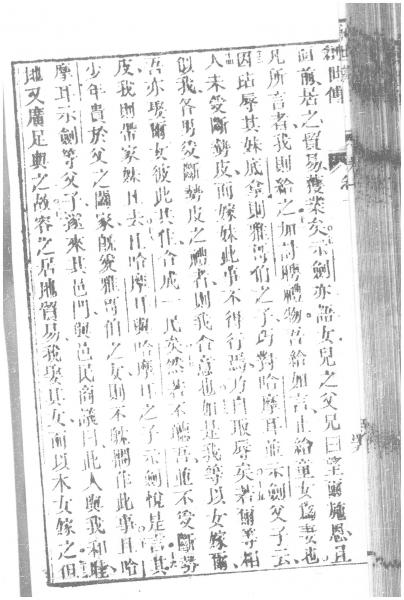 創世傳
向前居之貿易獲業矣示劍亦語女兒之父兄曰望爾施恩且
凡所言者我則給之加討聘禮物吾給如言止給童女爲妻也
因玷辱其妹底拿則雅哥伯之子巧對哈摩耳並示劍父子云
人未受斷勢皮而嫁妹此事不得行焉乃自取辱矣若爾等相
似我各男受斷勢皮之禮者則我合意也如是我等以女嫁爾
吾亦娶爾女彼此共住合成一民矣然若不聽吾並不受斷勢
皮我則帶家妹且去且哈摩耳與哈摩耳之子示劍悅是言其
少年貴於父之闔家旣愛雅哥伯之女則不躭擱作此事且哈
摩耳示劍等父子遂來其邑門與邑民商議曰此人與我和睦
地又廣足與之故容之居地貿易我娶其女而以本女嫁之但